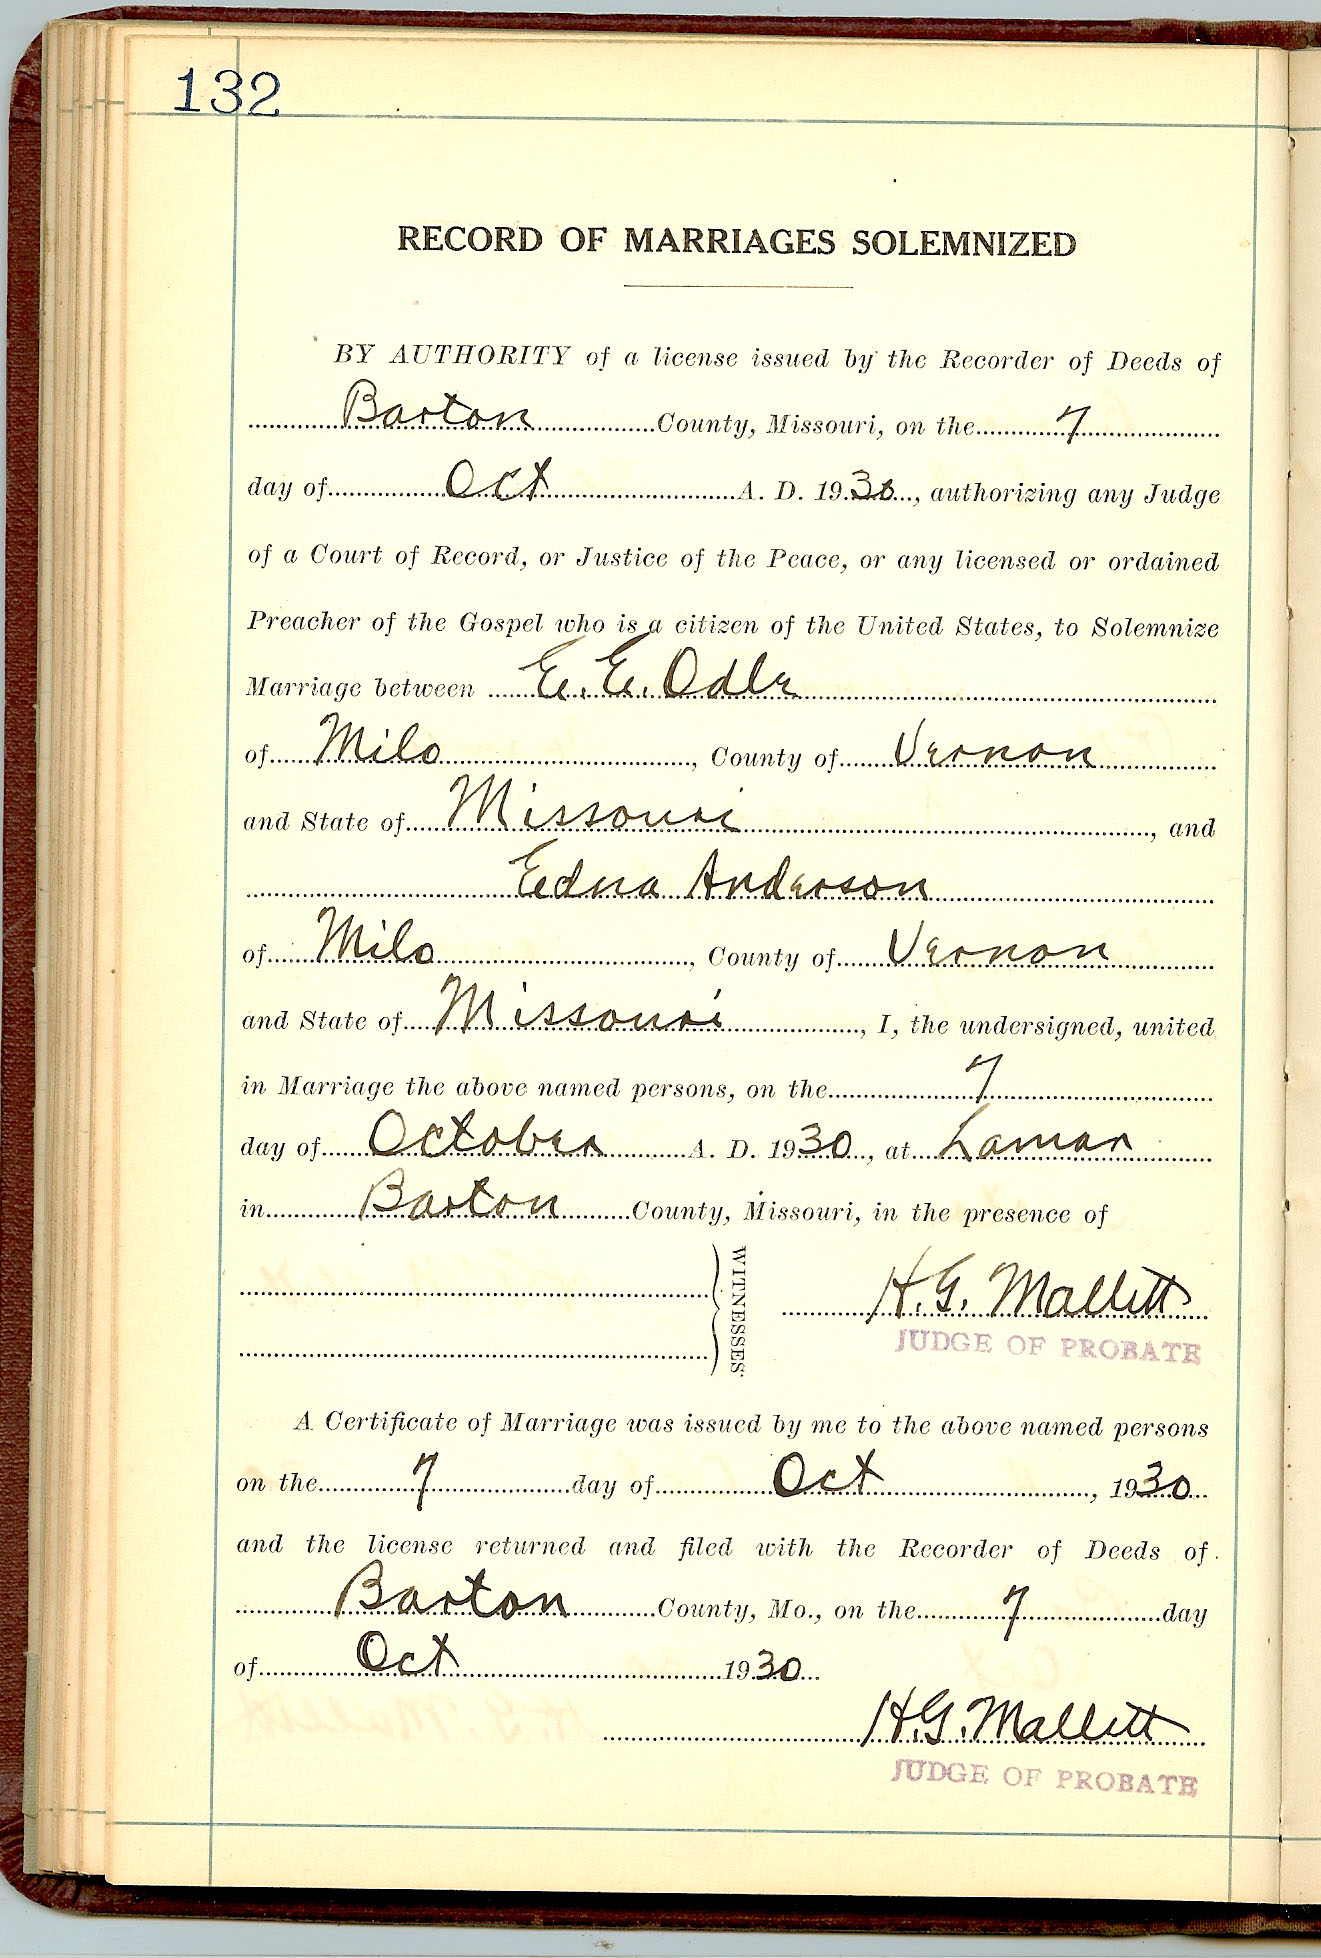 132
RECORD OF MARRIAGES SOLEMNIZED
BY AUTHORITY of a license issued by the Recorder of Deeds of
Barton County, Missouri, on the 7
day of Oct A. D. 1930, authorizing any Judge
of a Court of Record, or Justice of the Peace, or any licensed or ordained
Preacher of the Gospel who is a citizen of the United States, to Solemnize
Marriage between E. E. Odle
of Milo, County of Vernon
and State of Missouri, and
Edna Anderson
of Milo, County of Vernon
and State of Missouri, I, the undersigned, united
in Marriage the above named persons, on the 7
day of October A. D. 1930, at Lamar
in Barton County, Missouri, in the presence of
WITNESSES.
H. G. Mallett
JUDGE OF PROBATE
A Certificate of Marriage was issued by me to the above named persons
on the 7 day of Oct, 1930
and the license returned and filed with the Recorder of Deeds of
Barton County, Mo., on the 7 day
of Oct 1930
H. G. Mallett
JUDGE OF PROBATE